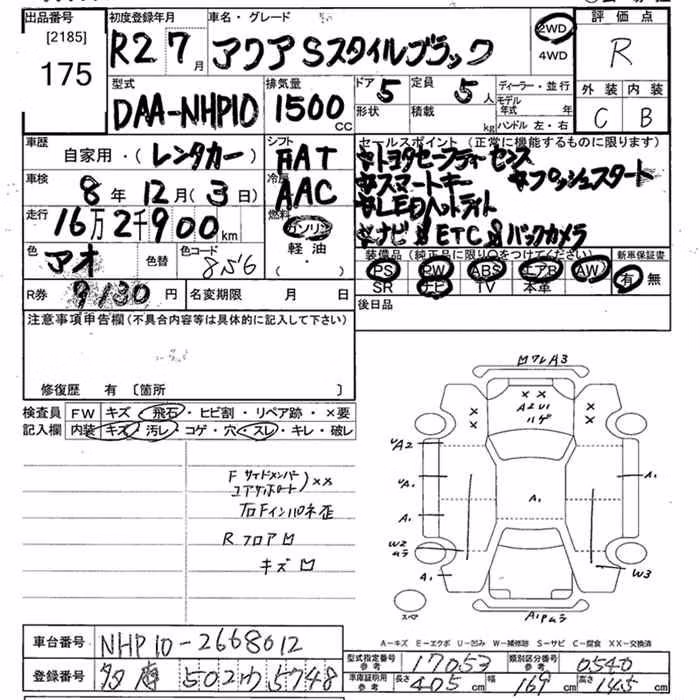 出品番号
[2185]
175
初度登録年月
R2 7月
車名・グレード
アクア Sスタイルブラック
2WD
4WD
評価点
R
外装 内装
C B
型式
DAA-NHP10
排気量
1500 CC
ドア 5
形状
定員 5 人
積載 kg
ディーラー・並行
モデル年式 年
ハンドル 左・右
車歴
自家用・(レンタカー)
シフト
FAT
セールスポイント(正常に機能するものに限ります)
☆トヨタセーフティーセンス
☆スマートキー ☆プッシュスタート
☆LEDヘッドライト
☆ナビ & ETC & バックカメラ
車検
8年12月(3日)
AAC
走行
16万2千900km
燃料
ガソリン
軽油
(・)
色
アオ
色替
色コード
8S6
装備品(純正品に限り○をつけてください)
PS PW ABS エアB AW
SR ナビ TV 本革
新車保証書
有 無
R券 9130円
名変期限 月 日
後日品
注意事項申告欄(不具合内容等は具体的に記入して下さい)
修復歴 有〔箇所 〕
検査員記入欄
FW キズ・飛石・ヒビ割・リペア跡・×要
内装 キズ・汚レ・コゲ・穴・スレ・キレ・破レ
F サイドメンバー
コアサポート )××
右Fインパネ歪
R フロア凹
キズ凹
凹ワレA3
××
A2U1
ハゲ
×
×
×
×
A2
A1
A1
W2
ムラ
A1
A1
A1
W3
スペア
A1Pムラ
A-キズ E-エクボ U-凹み W-補修跡 S-サビ C-腐食 XX-交換済
車台番号 NHP10-2668012
登録番号 多摩 502わ5748
型式指定番号 参考 17053
類別区分番号 参考 0540
車庫証明用 参考 長さ405cm 幅169cm 高さ145cm